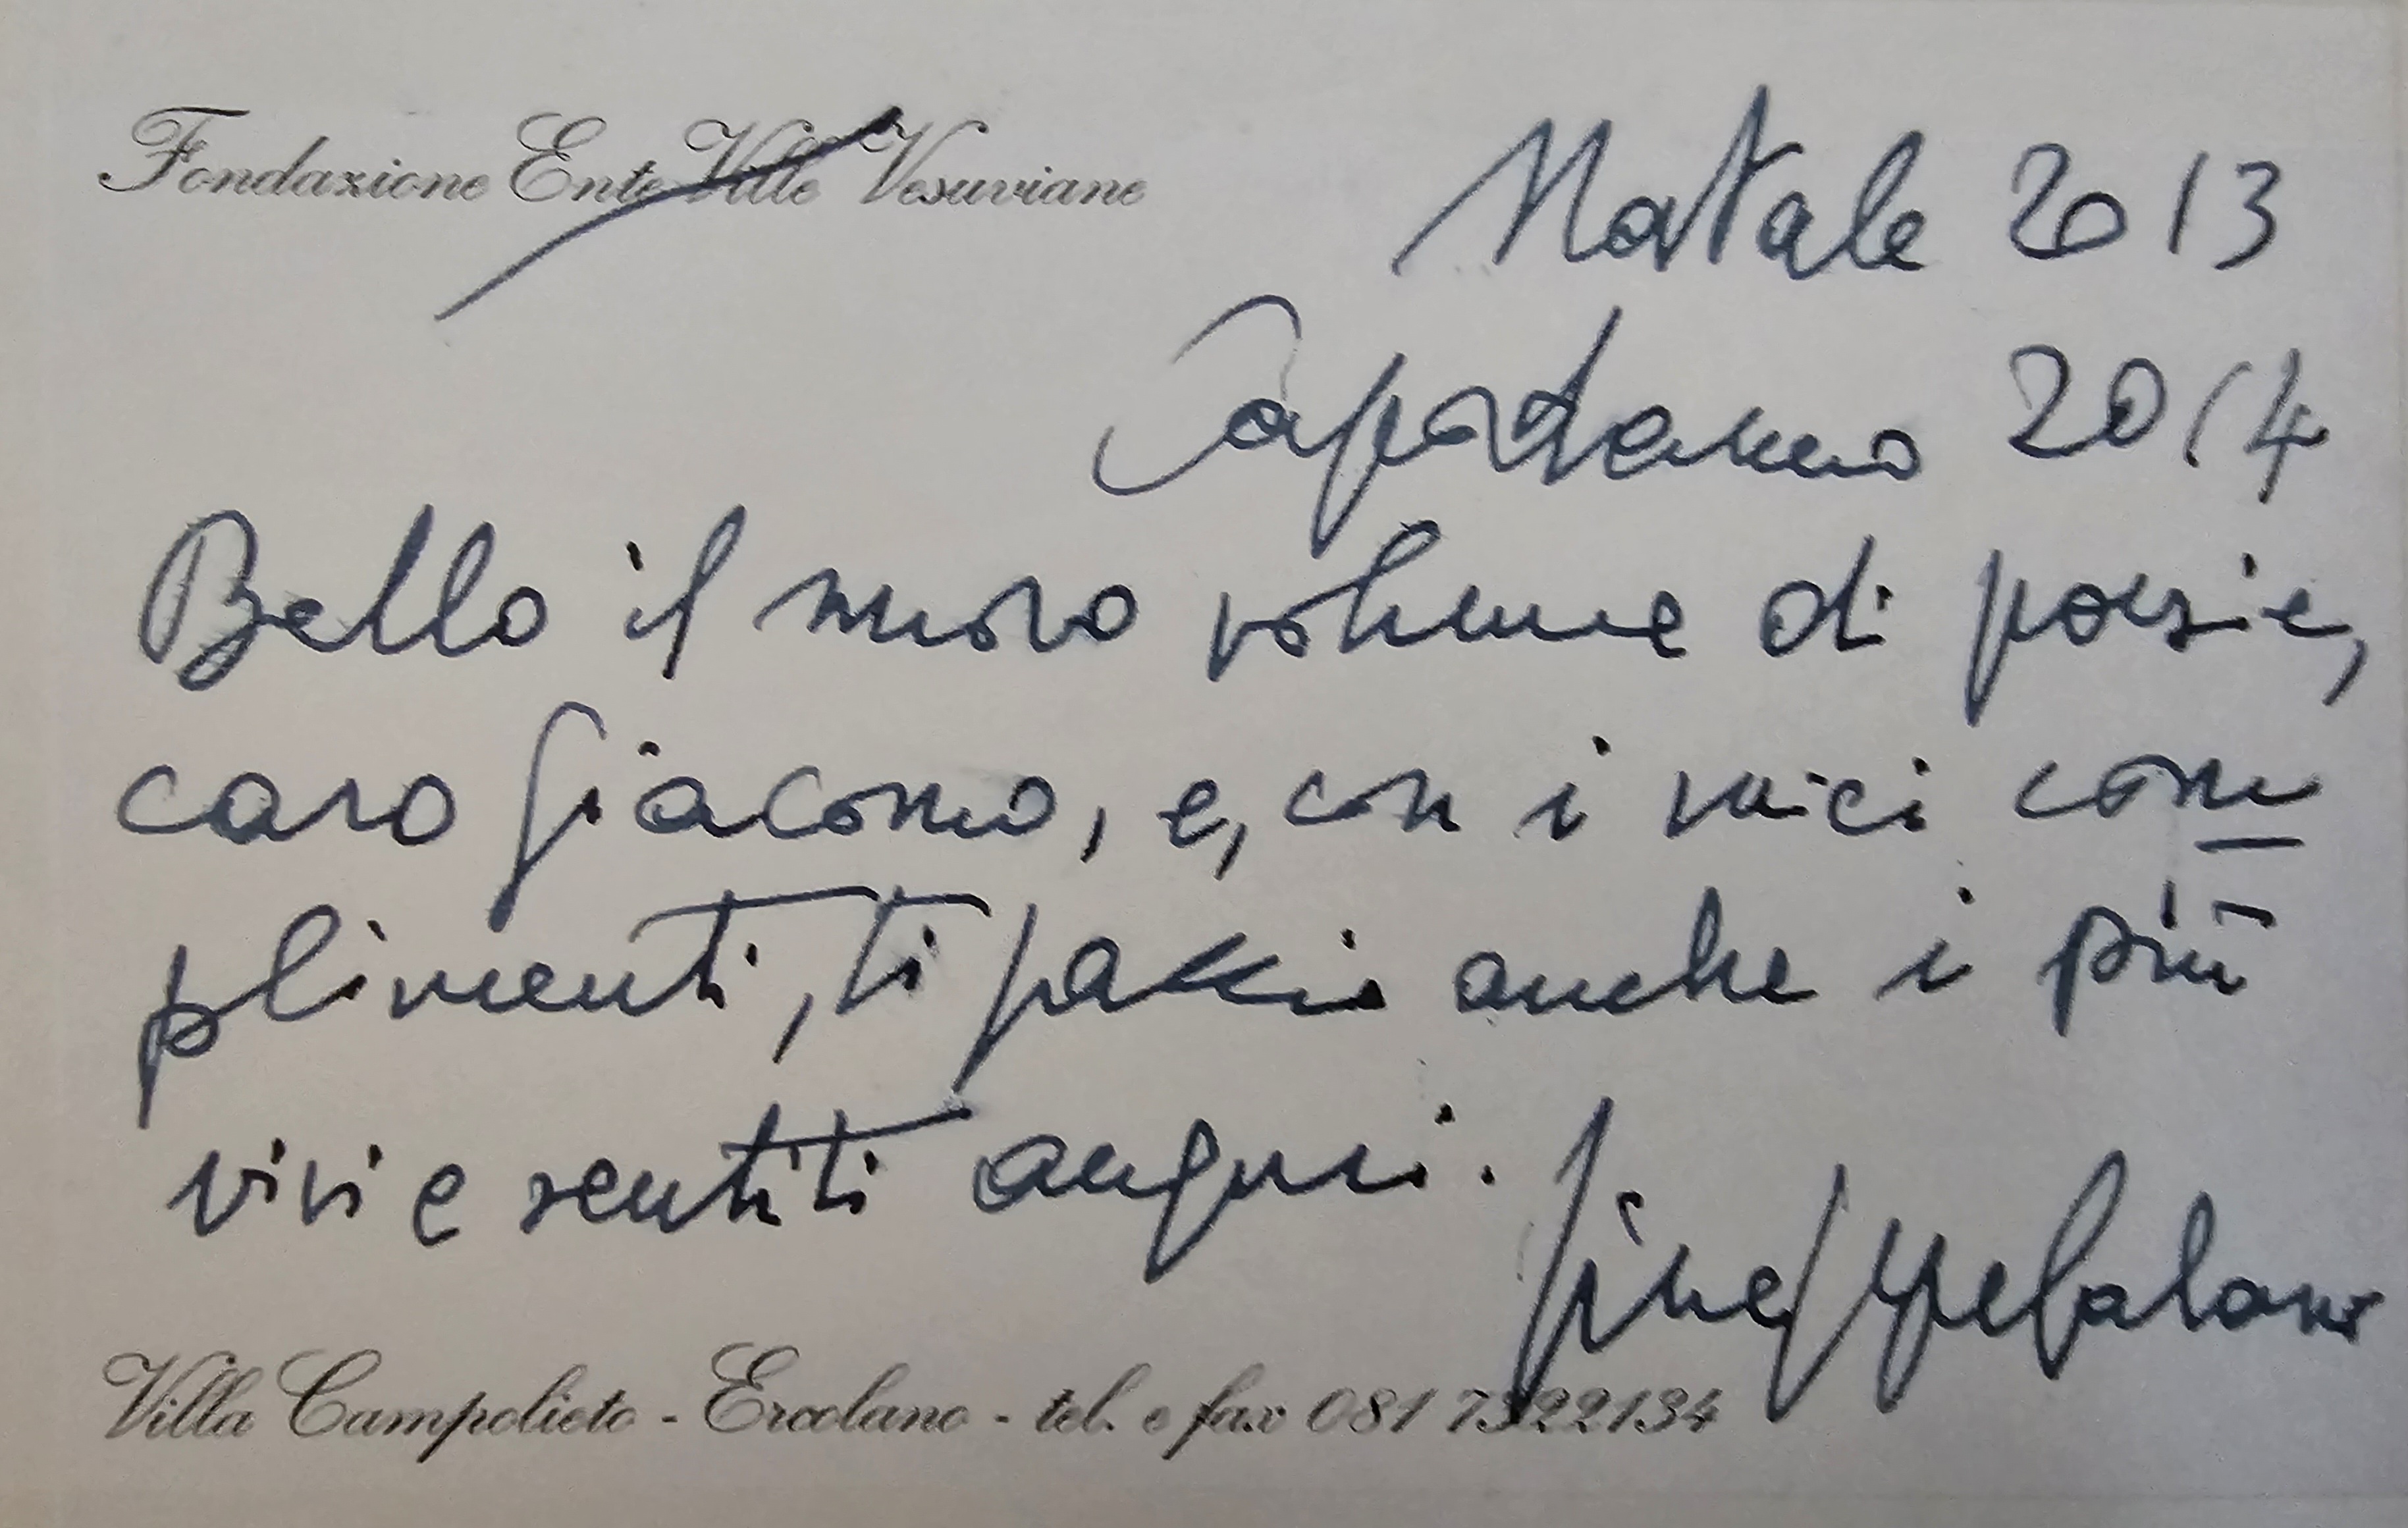 Fondazione Ente Ville Vesuviane
Natale 2013
Capodanno 2014
Bello il nuovo volume di poesie,
caro Giacomo, e, con i miei com
plimenti, ti faccio anche i più
vivi e sentiti auguri.
Giuseppe Galasso
Villa Campolieto - Ercolano - tel. e fax 081 7322134